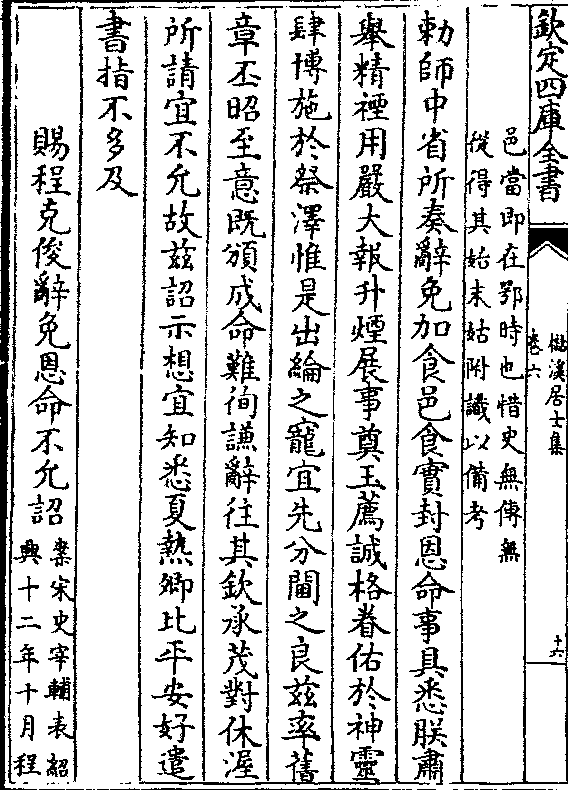 欽定四庫全書
檆溪居士集
卷六
十六
邑當即在鄂時也惜史無傳無
從得其始末姑附識以備考
勅師中省所奏辭免加食邑食實封恩命事具悉朕肅
舉精禋用嚴大報升煙展事奠玉薦誠格眷佑於神靈
肆博施於祭澤惟是出綸之寵宜先分閫之良兹率舊
章丕昭至意既頒成命難徇謙辭往其欽承茂對休渥
所請宜不允故兹詔示想宜知悉夏熱卿比平安好遣
書指不多及
賜程克俊辭免恩命不允詔
案宋史宰輔表紹
興十二年十月程